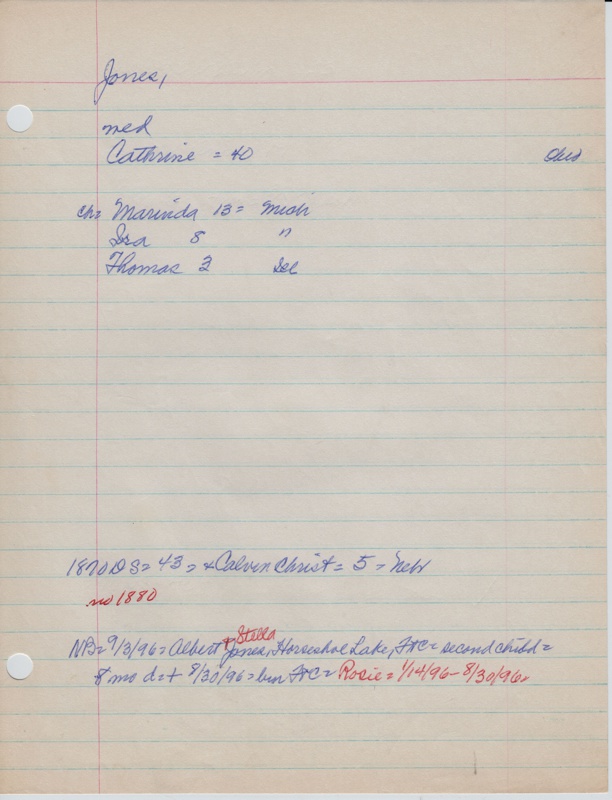 Jones,
med
Cathrine = 40 Ohio
ch= Marinda 13 = Mich
Ira 8 "
Thomas 2
1870 DS= 43 = + Calven Christ = 5 = Neb
no 1880
NB= 9/3/96 = Albert + Stella Jones, Horseshoe Lake, F+C = second child =
8 mo d = + 8/30/96 = bur F+C = Rosie = 1/14/96 - 8/30/96.